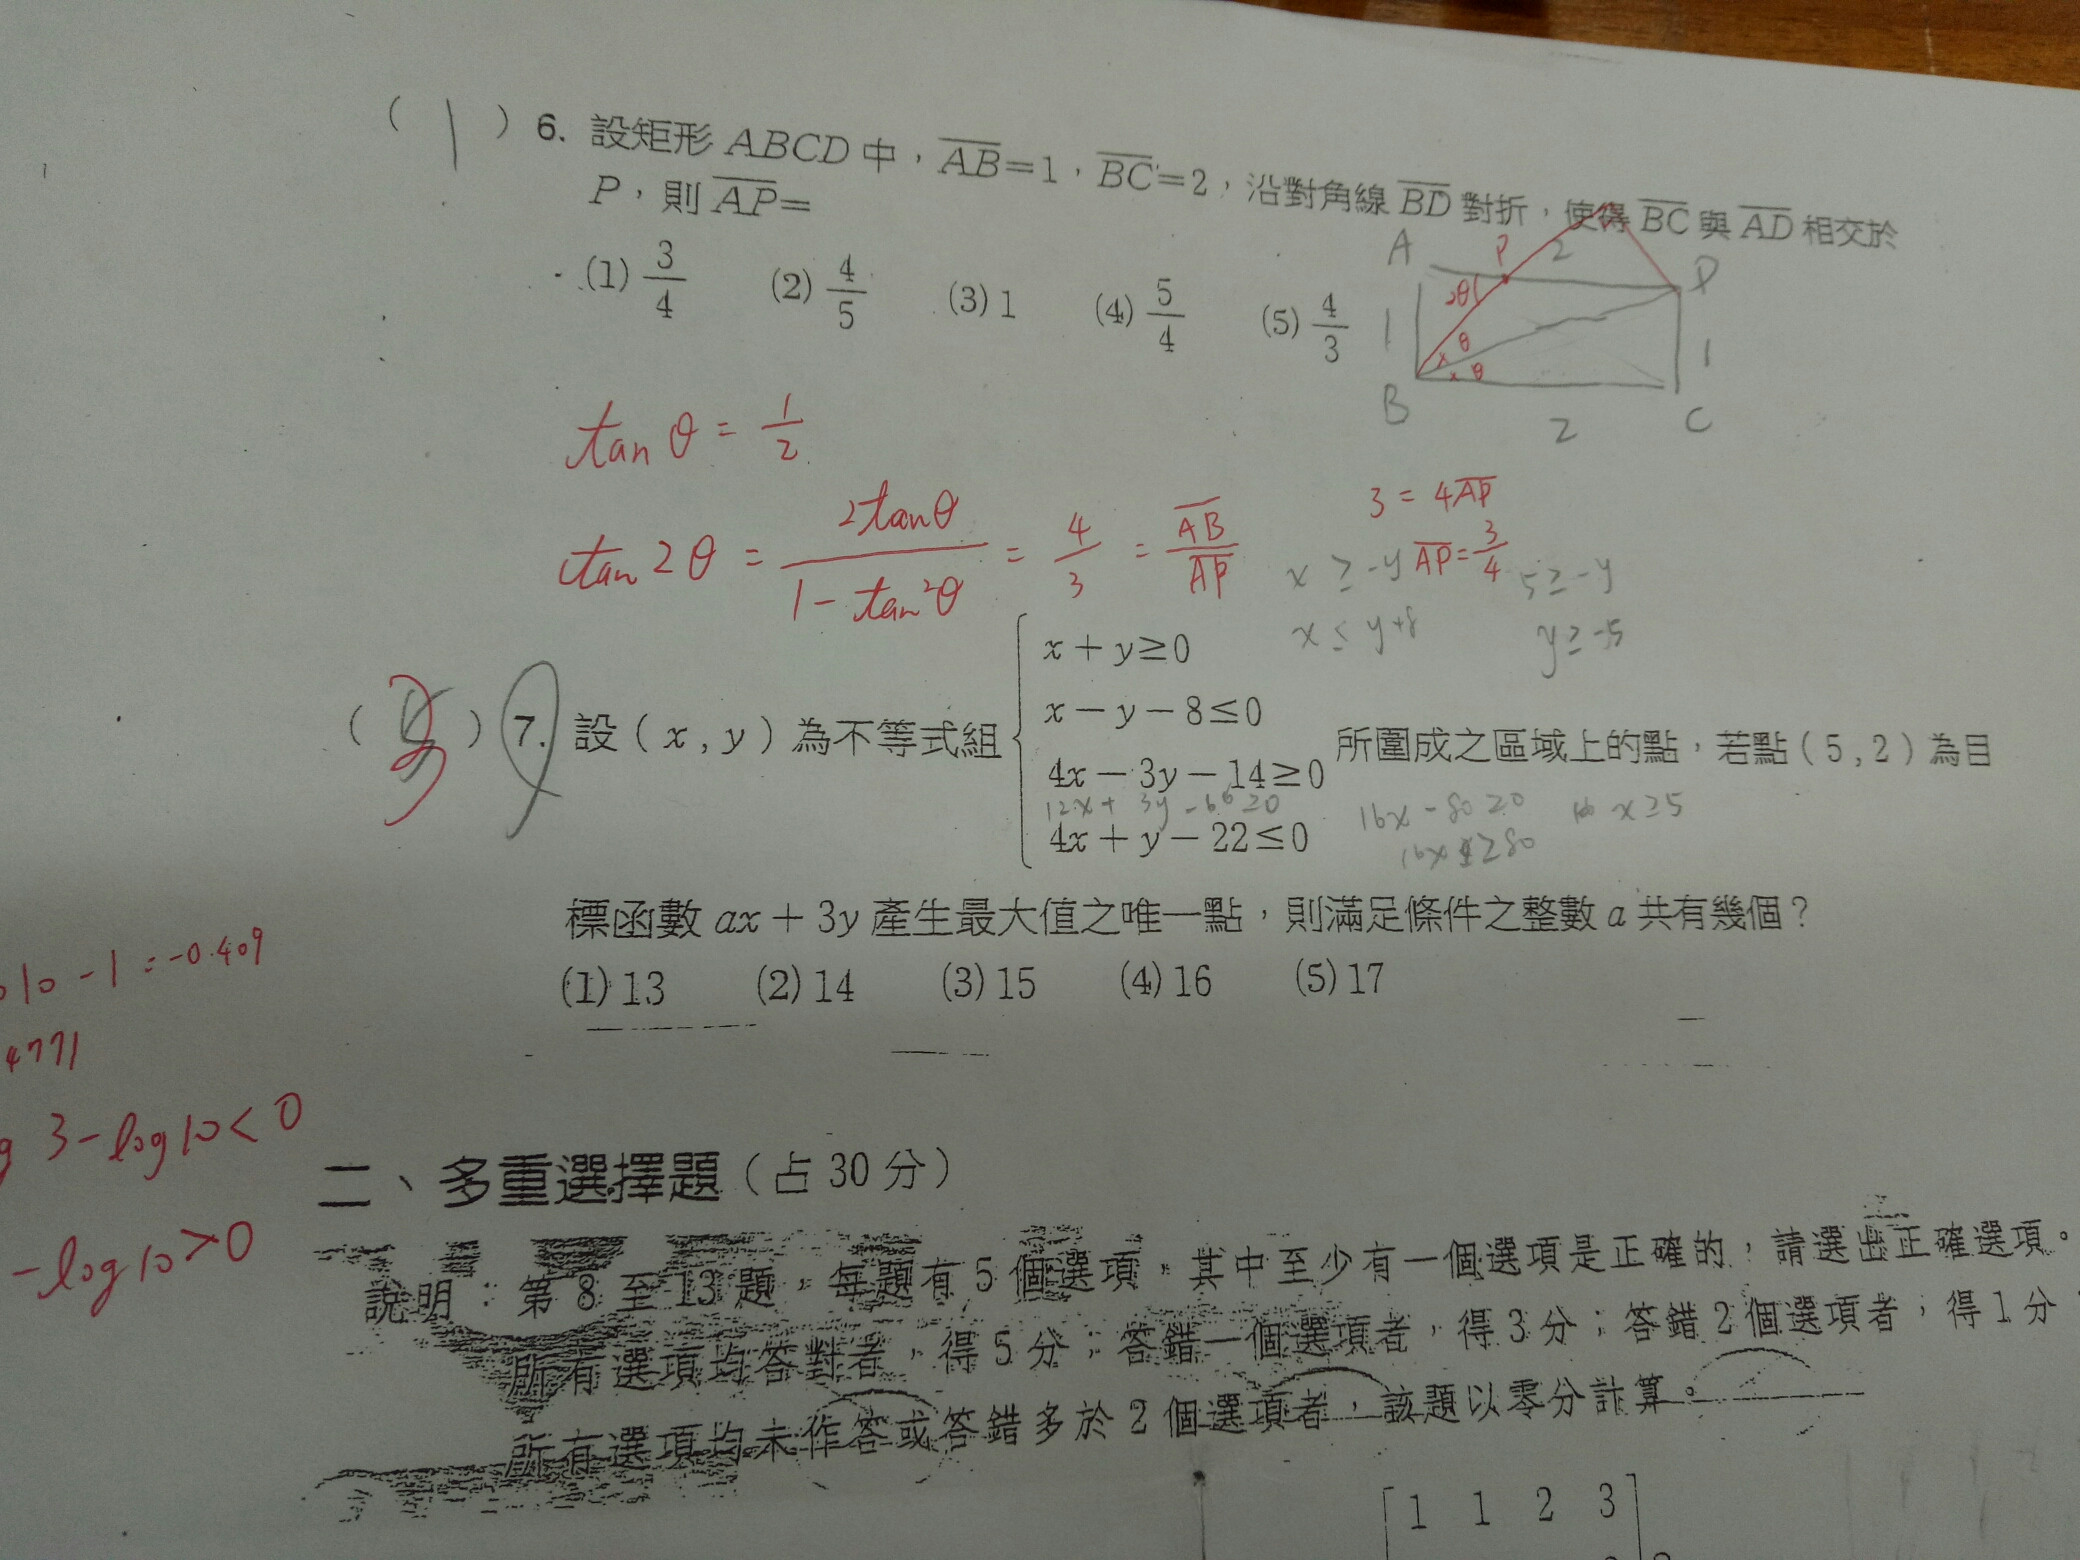 ( 1 ) 6. 設矩形 ABCD 中，AB=1，BC=2，沿對角線 BD 對折，使得 BC 與 AD 相交於
P，則 AP=
(1) 3/4 (2) 4/5 (3) 1 (4) 5/4 (5) 4/3
A P 2 D
2θ
1 θ 1
θ
B 2 C
tan θ = 1/2
tan 2θ = 2tanθ / 1 - tan²θ = 4/3 = AB/AP
3 = 4AP
AP = 3/4
x ≥ -y
x ≤ y+8
5 ≥ -y
y ≥ -5
( 3 ) 7. 設 ( x , y ) 為不等式組
x + y ≥ 0
x - y - 8 ≤ 0
4x - 3y - 14 ≥ 0
12x + 3y - 66 ≥ 0
4x + y - 22 ≤ 0
所圍成之區域上的點，若點 ( 5 , 2 ) 為目
16x - 80 ≥ 0
x ≥ 5
16x ≥ 80
標函數 ax + 3y 產生最大值之唯一點，則滿足條件之整數 a 共有幾個？
(1) 13 (2) 14 (3) 15 (4) 16 (5) 17
10 - 1 = -0.409
4771
3 - log 10 < 0
- log 10 > 0
二、多重選擇題（占 30 分）
說明：第 8 至 13 題，每題有 5 個選項，其中至少有一個選項是正確的，請選出正確選項。
所有選項均答對者，得 5 分；答錯一個選項者，得 3 分；答錯 2 個選項者，得 1 分
所有選項均未作答或答錯多於 2 個選項者，該題以零分計算。
1 1 2 3